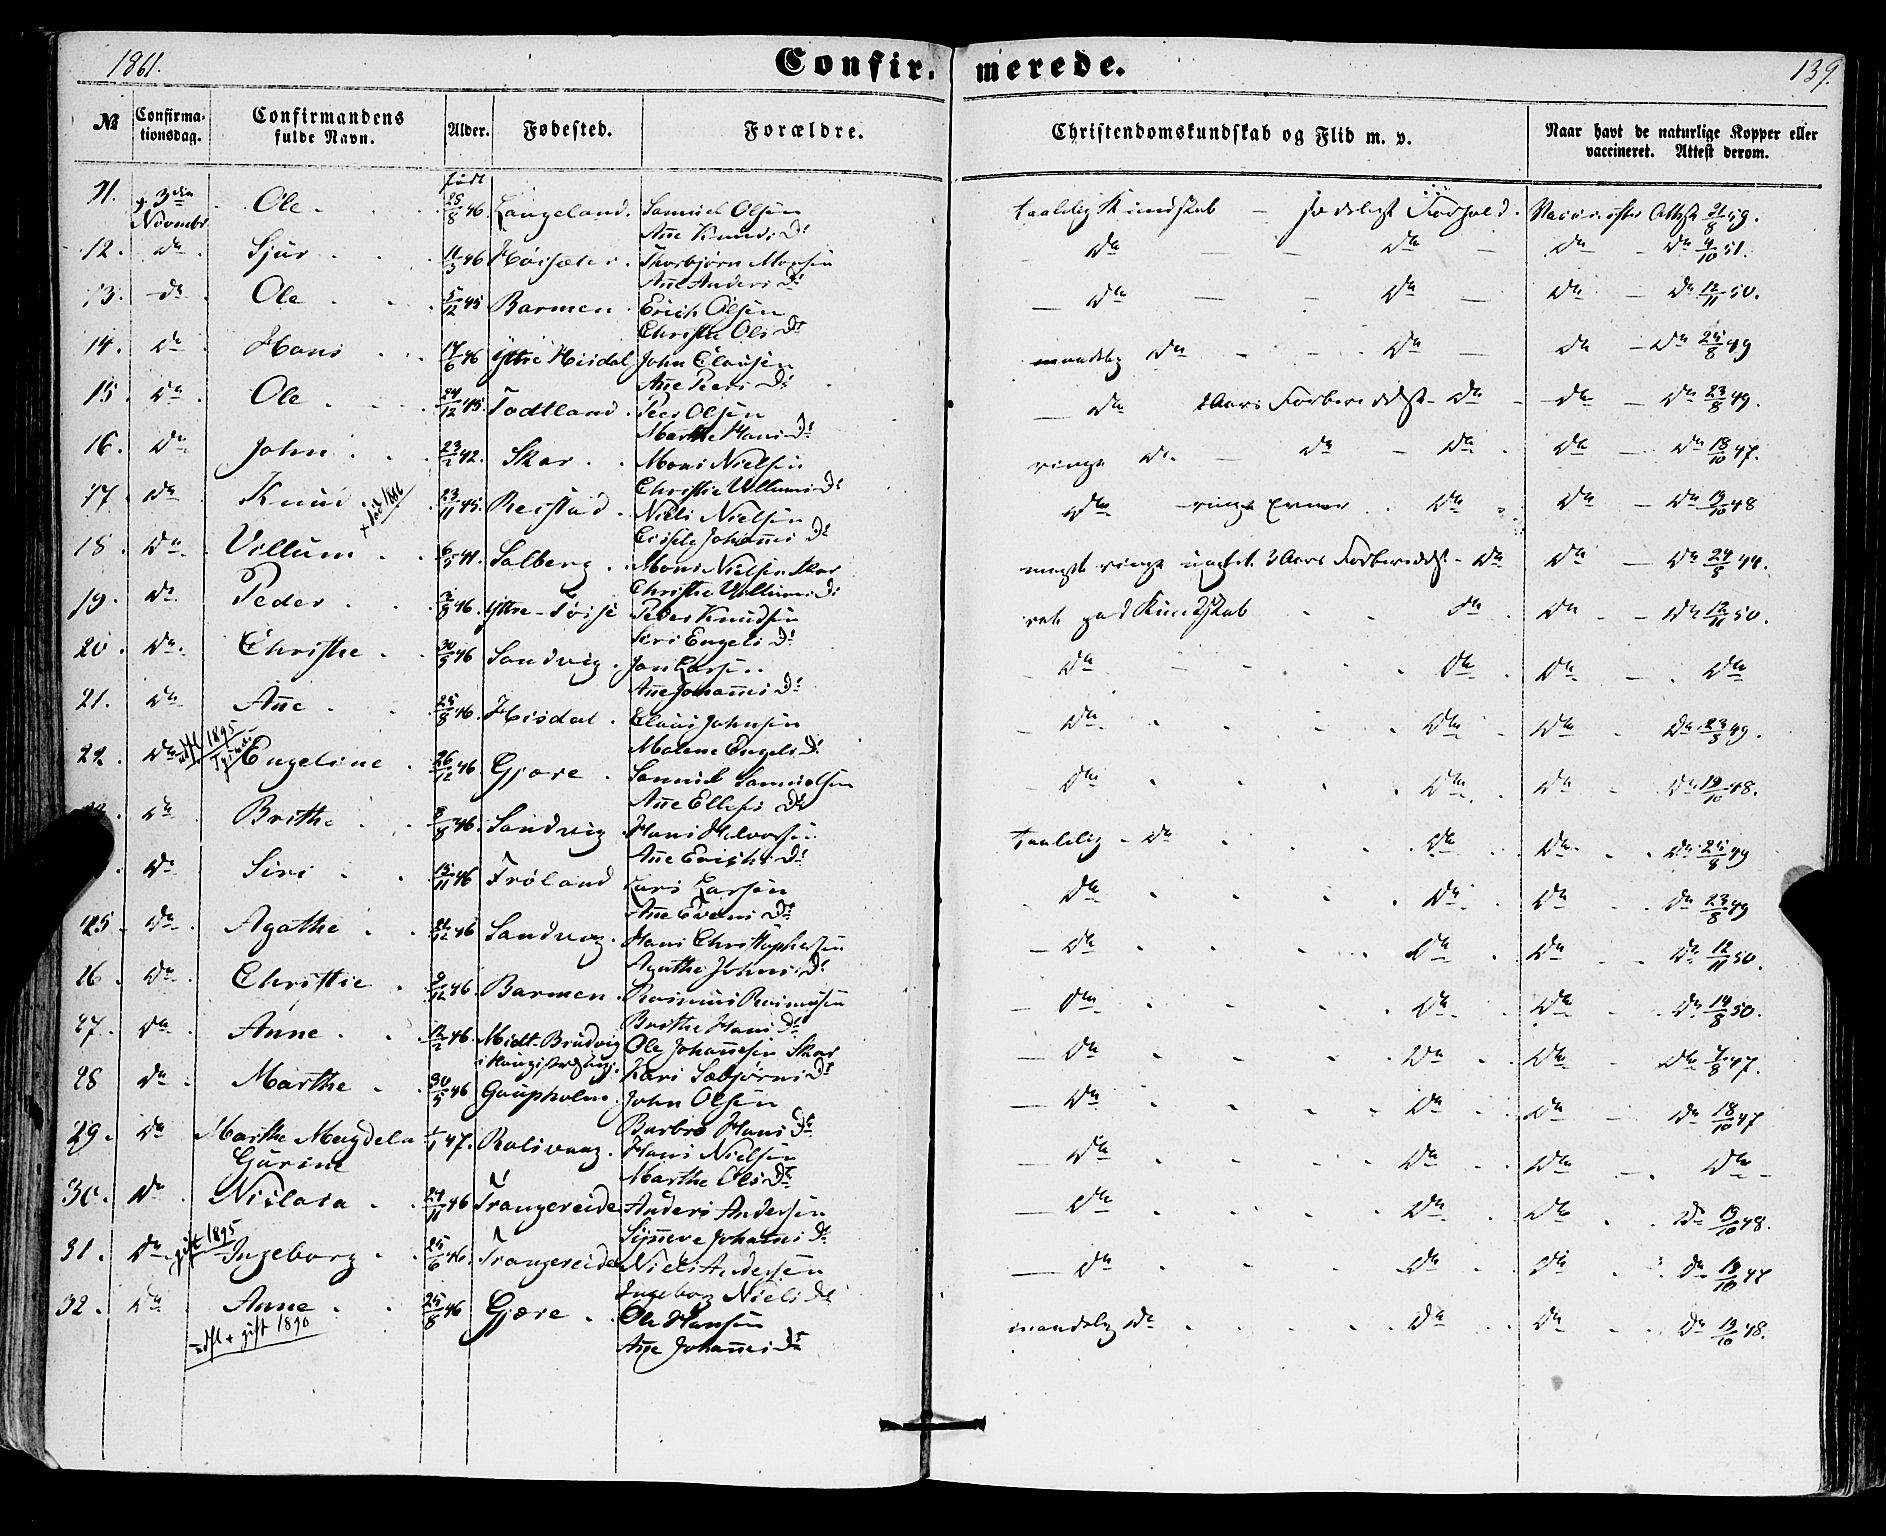 1861.
Confir- merede.
139.
№ Confirma- tionsdag. Confirmandens fulde Navn. Alder. Fødested. Forældre. Christendomskundskab og Flid m. v. Naar havt de naturlige Kopper eller vaccineret. Attest derom.
født
11. 3die Novmbr Ole 25/8 46. Langeland. Samuel Olsen Ane Knuds Dr taalelig Kundskab – sædeligt Forhold. Attest 21/8 59.
12. do Sjur 11/3 46 Høisæter. Thorbjørn Monsen Ane Anders Dr do do do do 4/10 51.
13. do Ole 5/12 45 Barmen Erich Olsen Christie Ols Dr do do do do 12/11 50.
14. do Hans 17/6 46 Yttre Hisdal John Clausen Ane Peers Dr maadelig do do do do 25/8 49
15. do Ole 24/12 45. Todtland. Peer Olsen Marthe Hans Dr do 2 Aars Forberedelse do do do 23/8 49.
16. do John 23/2 42. Skar. Mons Nielsen Christie Villums Dr ringe do do do do do 18/10 47.
17. do Knud + død 1886 23/11 45. Reistad. Niels Nielsen Johannes Dr do ringe Evner do do do 19/10 48
18. do Villum 6/5 41. Solberg. Mons Nielsen Skar Christie Villums Dr meget ringe 3 Aars Forberedelse do do do 24/8 44.
19. do Peder 46. Yttre-Tøsse Peder Knudsen Siri Engels Dr ret god Kundskab do do do 12/11 50.
20. do Christie 30/5 46 Sandvig. Jon Larsen Ane Johannes Dr do do do do
21. do Ane 25/8 46. Hisdal. Claus Johnsen Malene Engels Dr do do do do 23/8 49.
22. do 1895 Engeline 26/12 46. Gjære. Samuel Samuelsen Ane Ellefs Dr do do do do 19/10 48.
do Brithe 46. Sandvig Hans Halvorsen Ane Erichs Dr taalelig do do do do 25/8 49
do Siri 15/11 46 Frøland Lars Larsen Ane Evens Dr do do do do 23/8 49
25. do Agathe 46 Sandvig. Hans Christophersen Agathe Johns Dr do do do do 12/11 50.
26 do Christie 9/12 46. Barmen. Rasmus Rasmussen Brithe Hans Dr do do do do 14/8 50.
27. do Anne 12/2 46. Midt-Brudvig i Ole Johannesen Skar Kari Sæbjørns Dr do do do do 47.
28 do Marthe 30/5 46 Gaupholm. John Olsen Barbro Hans Dr do do do do 18/10 47
29. do Marthe Magdela Gurine 1/1 47. Hans Nielsen Marthe Ols Dr do do do do
30. do Nielava 24/11 46 Trangereide Anders Andersen Synneve Johannes Dr do do do do 19/10 48.
31. do gift 1895 Ingeborg 25/6 46. Trangereide Niels Andersen Ingeborg Niels Dr do do do do 18/10 47
32. do Anne udfl + gift 1890 25/8 46 Gjære. Ole Hansen Ane Johannes Dr maadelig do do do do 19/10 48.